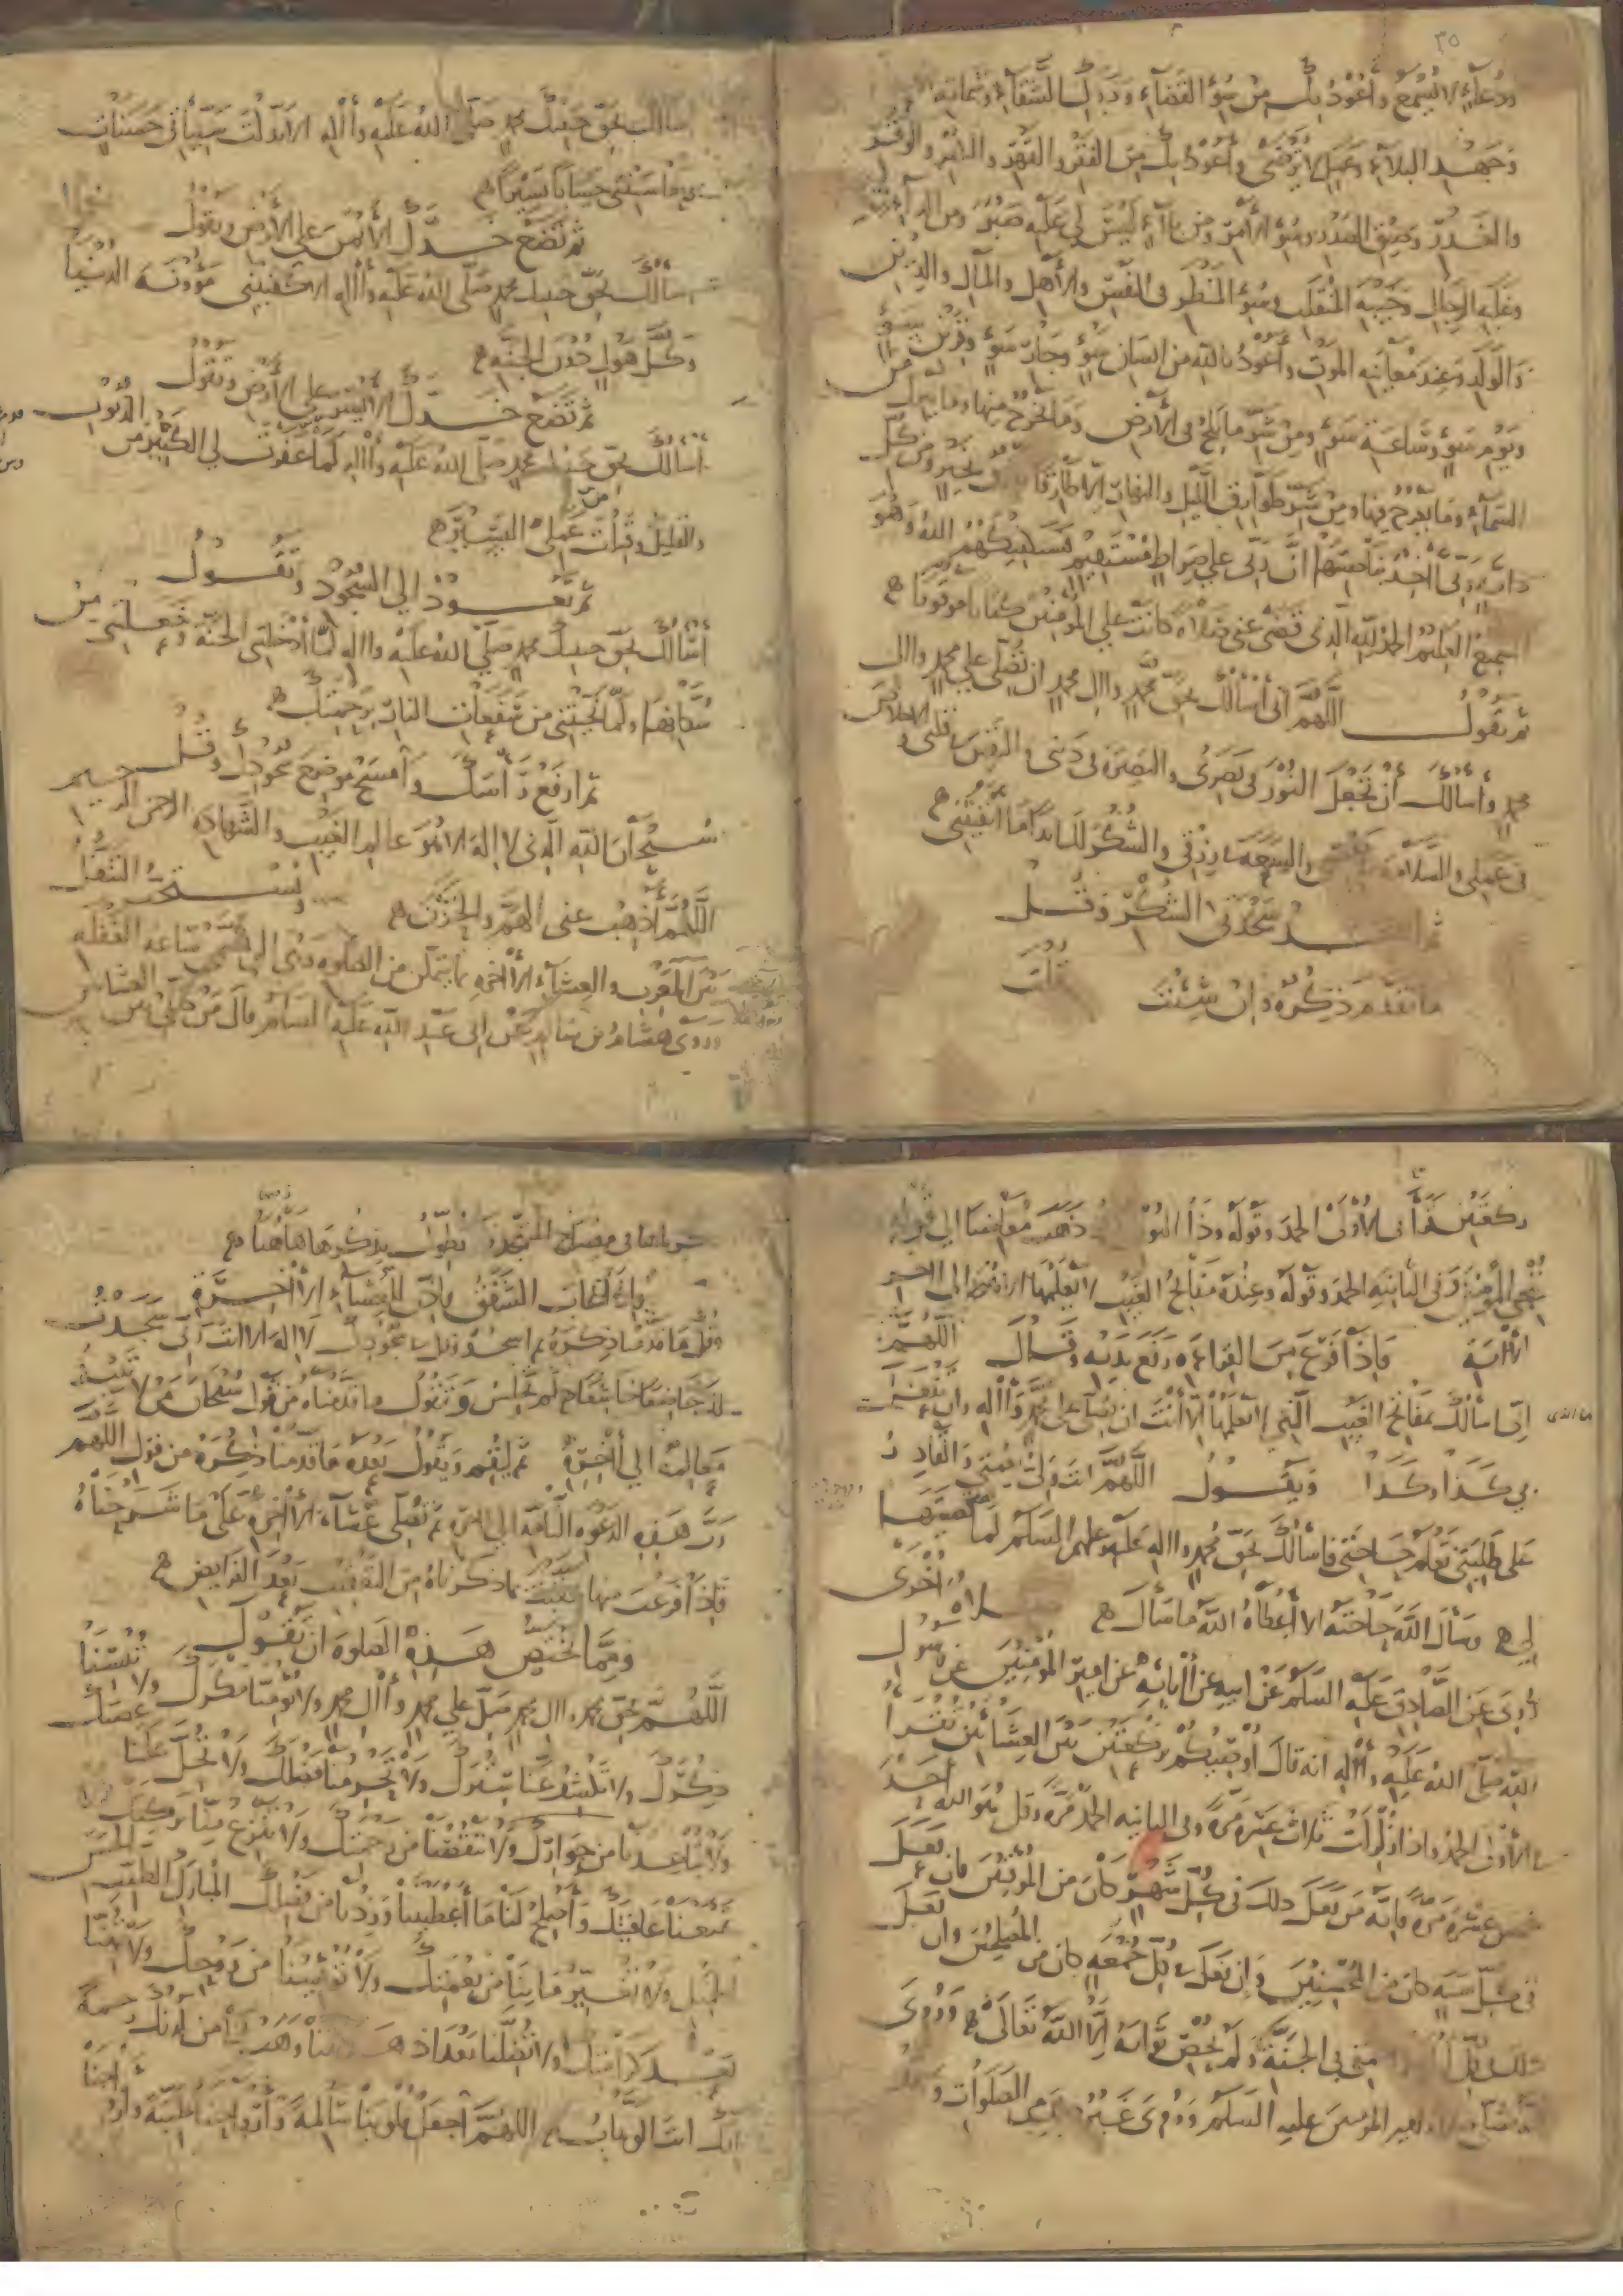 ٣٥
ودعاء لا يسمع وأعوذ بك من سوء القضاء ودرك الشقاء وشماتة
وجهد البلاء وعمل لا يرضى وأعوذ بك من الفقر والقهر والوقر
والغدر وضيق الصدر وسوء الأمر ومن بلاء ليس لي عليه صبر ومن الداء
وغلبة الرجال وخيبة المنقلب وسوء المنظر في النفس والأهل والمال والدين
والولد وعند معاينة الموت وأعوذ بالله من إنسان سوء وجار سوء وقرين سوء
ويوم سوء وساعة سوء ومن شر ما يلج في الأرض وما يخرج منها وما ينزل من
السماء وما يعرج فيها ومن شر طوارق الليل والنهار إلا طارقا بخير ومن كل
دابة ربي آخذ بناصيتها إن ربي على صراط مستقيم فسيكفيكهم الله وهو
السميع العليم الحمد لله الذي قضى عني صلاة كانت على المؤمنين كتابا موقوتا
ثم تقول اللهم إني أسألك بحق محمد وآل محمد أن تصلي على محمد وآل
محمد وأسألك أن تجعل النور في بصري والبصيرة في ديني واليقين في قلبي والإخلاص
في عملي والسلامة في نفسي والسعة في رزقي والشكر لك أبدا ما أبقيتني
ثم اسجد سجدتي الشكر وقل
ما تقدم ذكره وإن شئت قلت
أسألك بحق حبيبك محمد صلى الله عليه وآله إلا بدلت سيئاتي حسنات
وحاسبتني حسابا يسيرا
ثم تضع خدك الأيمن على الأرض وتقول
أسألك بحق حبيبك محمد صلى الله عليه وآله إلا كفيتني مؤونة الدنيا
وكل هول دون الجنة
ثم تضع خدك الأيسر على الأرض وتقول
أسألك بحق حبيبك محمد صلى الله عليه وآله لما غفرت لي الكثير من الذنوب
والقليل وقبلت من عملي اليسير
ثم تعود إلى السجود وتقول
أسألك بحق حبيبك محمد صلى الله عليه وآله لما أدخلتني الجنة وجعلتني من
سكانها ولما نجيتني من سفعات النار برحمتك
ثم ارفع رأسك وامسح موضع سجودك وقل
سبحان الله الذي لا إله إلا هو عالم الغيب والشهادة الرحمن الرحيم
اللهم أذهب عني الهم والحزن ويستحب التنفل
بين المغرب والعشاء الآخرة بما يتمكن من الصلوة وهي التي تسمى ساعة الغفلة
وروى هشام بن سالم عن أبي عبد الله عليه السلام قال من صلى بين العشائين
ركعتين قرأ في الأولى الحمد وقوله وذا النون إذ ذهب مغاضبا إلى قوله
ننجي المؤمنين وفي الثانية الحمد وقوله وعنده مفاتح الغيب لا يعلمها إلا هو إلى آخر
الآية فإذا فرغ من القراءة رفع يديه وقال اللهم
إني أسألك بمفاتح الغيب التي لا يعلمها إلا أنت أن تصلي على محمد وآله وأن تفعل
بي كذا وكذا ويقول اللهم أنت ولي نعمتي والقادر
على طلبتي تعلم حاجتي فأسألك بحق محمد وآله عليه وعليهم السلام لما قضيتها
لي وسأل الله حاجته إلا أعطاه الله ما سأل صلاة أخرى
روي عن الصادق عليه السلام عن أبيه عن آبائه عن أمير المؤمنين عن رسول
الله صلى الله عليه وآله أنه قال أوصيكم بركعتين بين العشائين تقرأ
في الأولى الحمد وإذا زلزلت ثلاث عشرة مرة وفي الثانية الحمد مرة وقل هو الله أحد
خمس عشرة مرة فإنه من فعل ذلك في كل شهر كان من الموقنين فإن فعل
في كل سنة كان من المحسنين وإن فعل في كل جمعة كان من المصلحين وإن فعل
ذلك في كل ليلة زاحمني في الجنة ولم يحص ثوابه إلا الله تعالى وروي
أمير المؤمنين عليه السلام وروي غير من الصلوات
شرحناها في مصباح المتهجد نطول بذكرها هاهنا
فإذا غاب الشفق فأذن للعشاء الآخرة
وقل ما قدمنا ذكره ثم اسجد وقل في سجودك لا إله إلا أنت ربي سجدت
لك خاضعا خاشعا ثم تجلس وتقول ما قدمناه من قول سبحان من لا تبيد
معالمه إلى آخره ثم ليقم ويقول بعده ما قدمنا ذكره من قول اللهم
رب هذه الدعوة التامة إلى آخره ثم تصلي عشاء الآخرة على ما شرحناه
فإذا فرغت منها عقبت بما ذكرناه من التعقيب بعد الفرايض
ومما يختص هذه الصلوة أن تقول
اللهم بحق محمد وآل محمد صل على محمد وآل محمد ولا تؤمنا مكرك ولا تنسنا
ذكرك ولا تكشف عنا سترك ولا تحرمنا فضلك ولا تحل علينا غضبك
ولا تباعدنا من جوارك ولا تنقصنا من رحمتك ولا تنزع منا بركتك
ولا تمنعنا عافيتك وأصلح لنا ما أعطيتنا وزدنا من فضلك المبارك الطيب الحسن
الجميل ولا تغير ما بنا من نعمتك ولا تؤيسنا من روحك ولا تهنا
بعد كرامتك ولا تضلنا بعد إذ هديتنا وهب لنا من لدنك رحمة
إنك أنت الوهاب اللهم اجعل قلوبنا سالمة وأرواحنا طيبة وأزواجنا